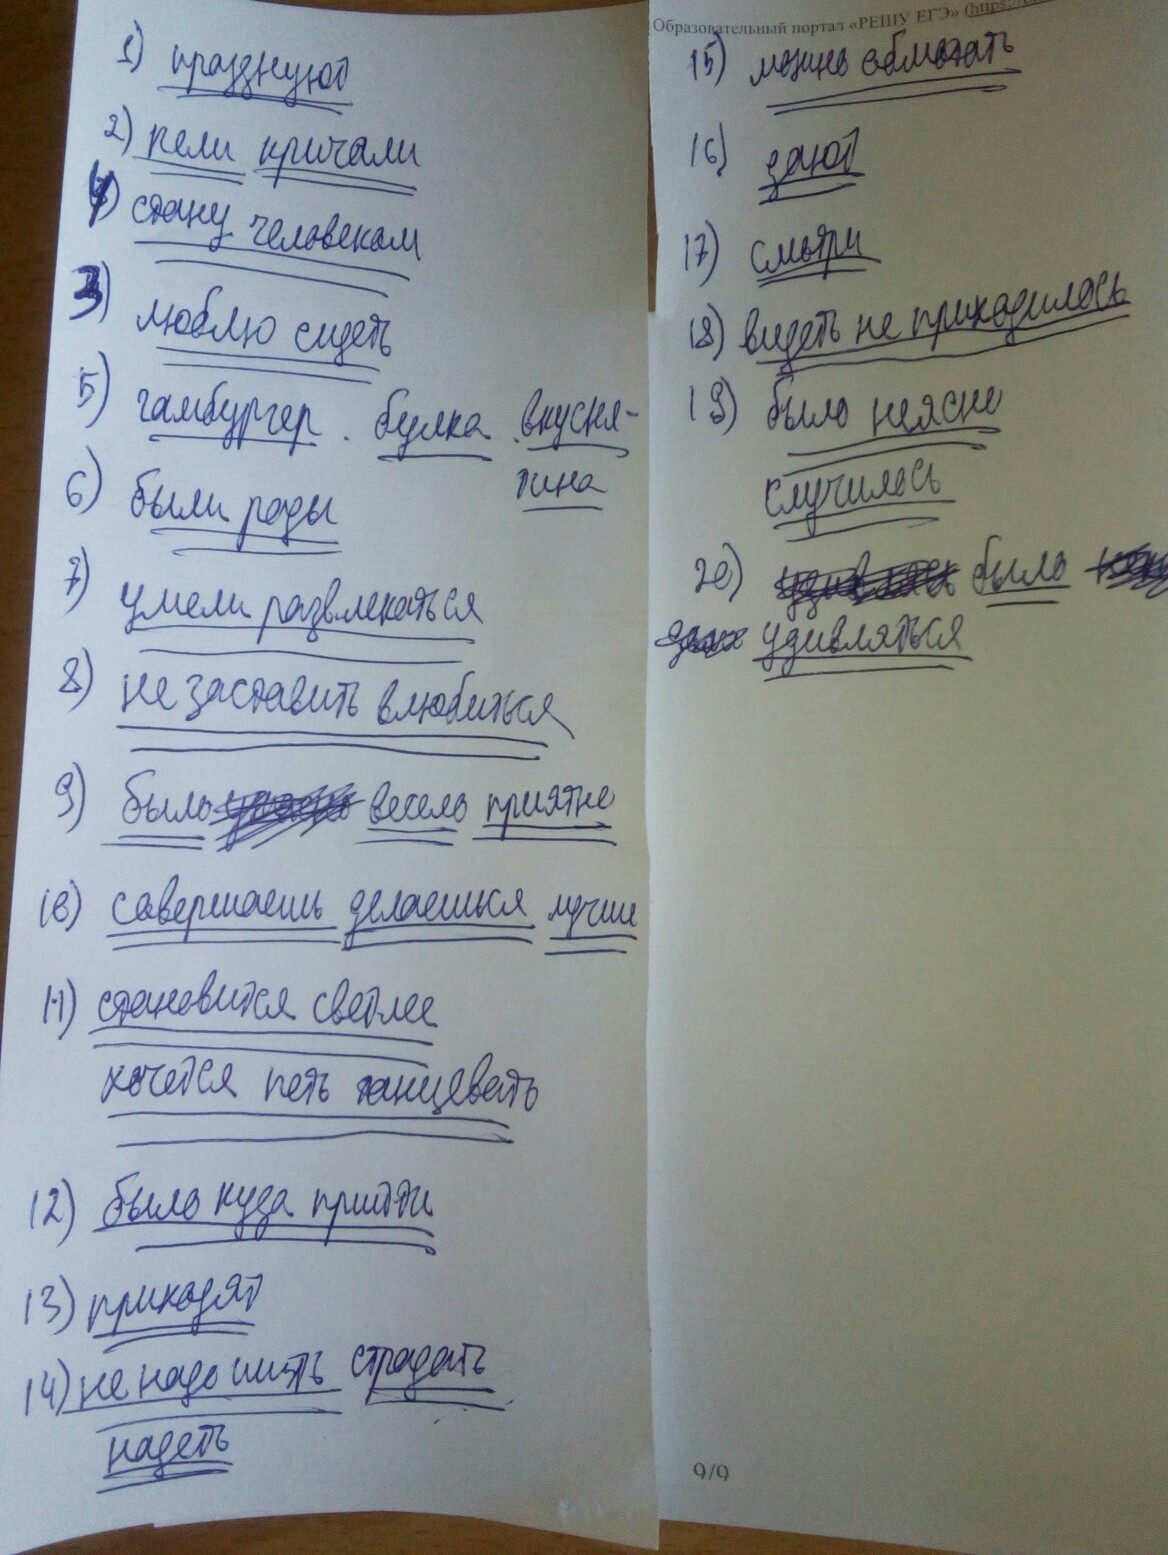 1) празднуют
2) пели кричали
4) стану человеком
3) люблю сидеть
5) гамбургер. булка. вкусня-
тина
6) были рады
7) умели развлекаться
8) не заставить влюбиться
9) было весело приятно
10) совершаешь делаешься лучше
11) становится светлее
хочется петь танцевать
12) было куда прийти
13) приходят
14) не надо шить страдать
надеть
Образовательный портал «РЕШУ ЕГЭ» (https://
15) можно обмотать
16) дают
17) смотри
18) видеть не приходилось
19) было неясно
случилось
20) было
удивляться
9/9